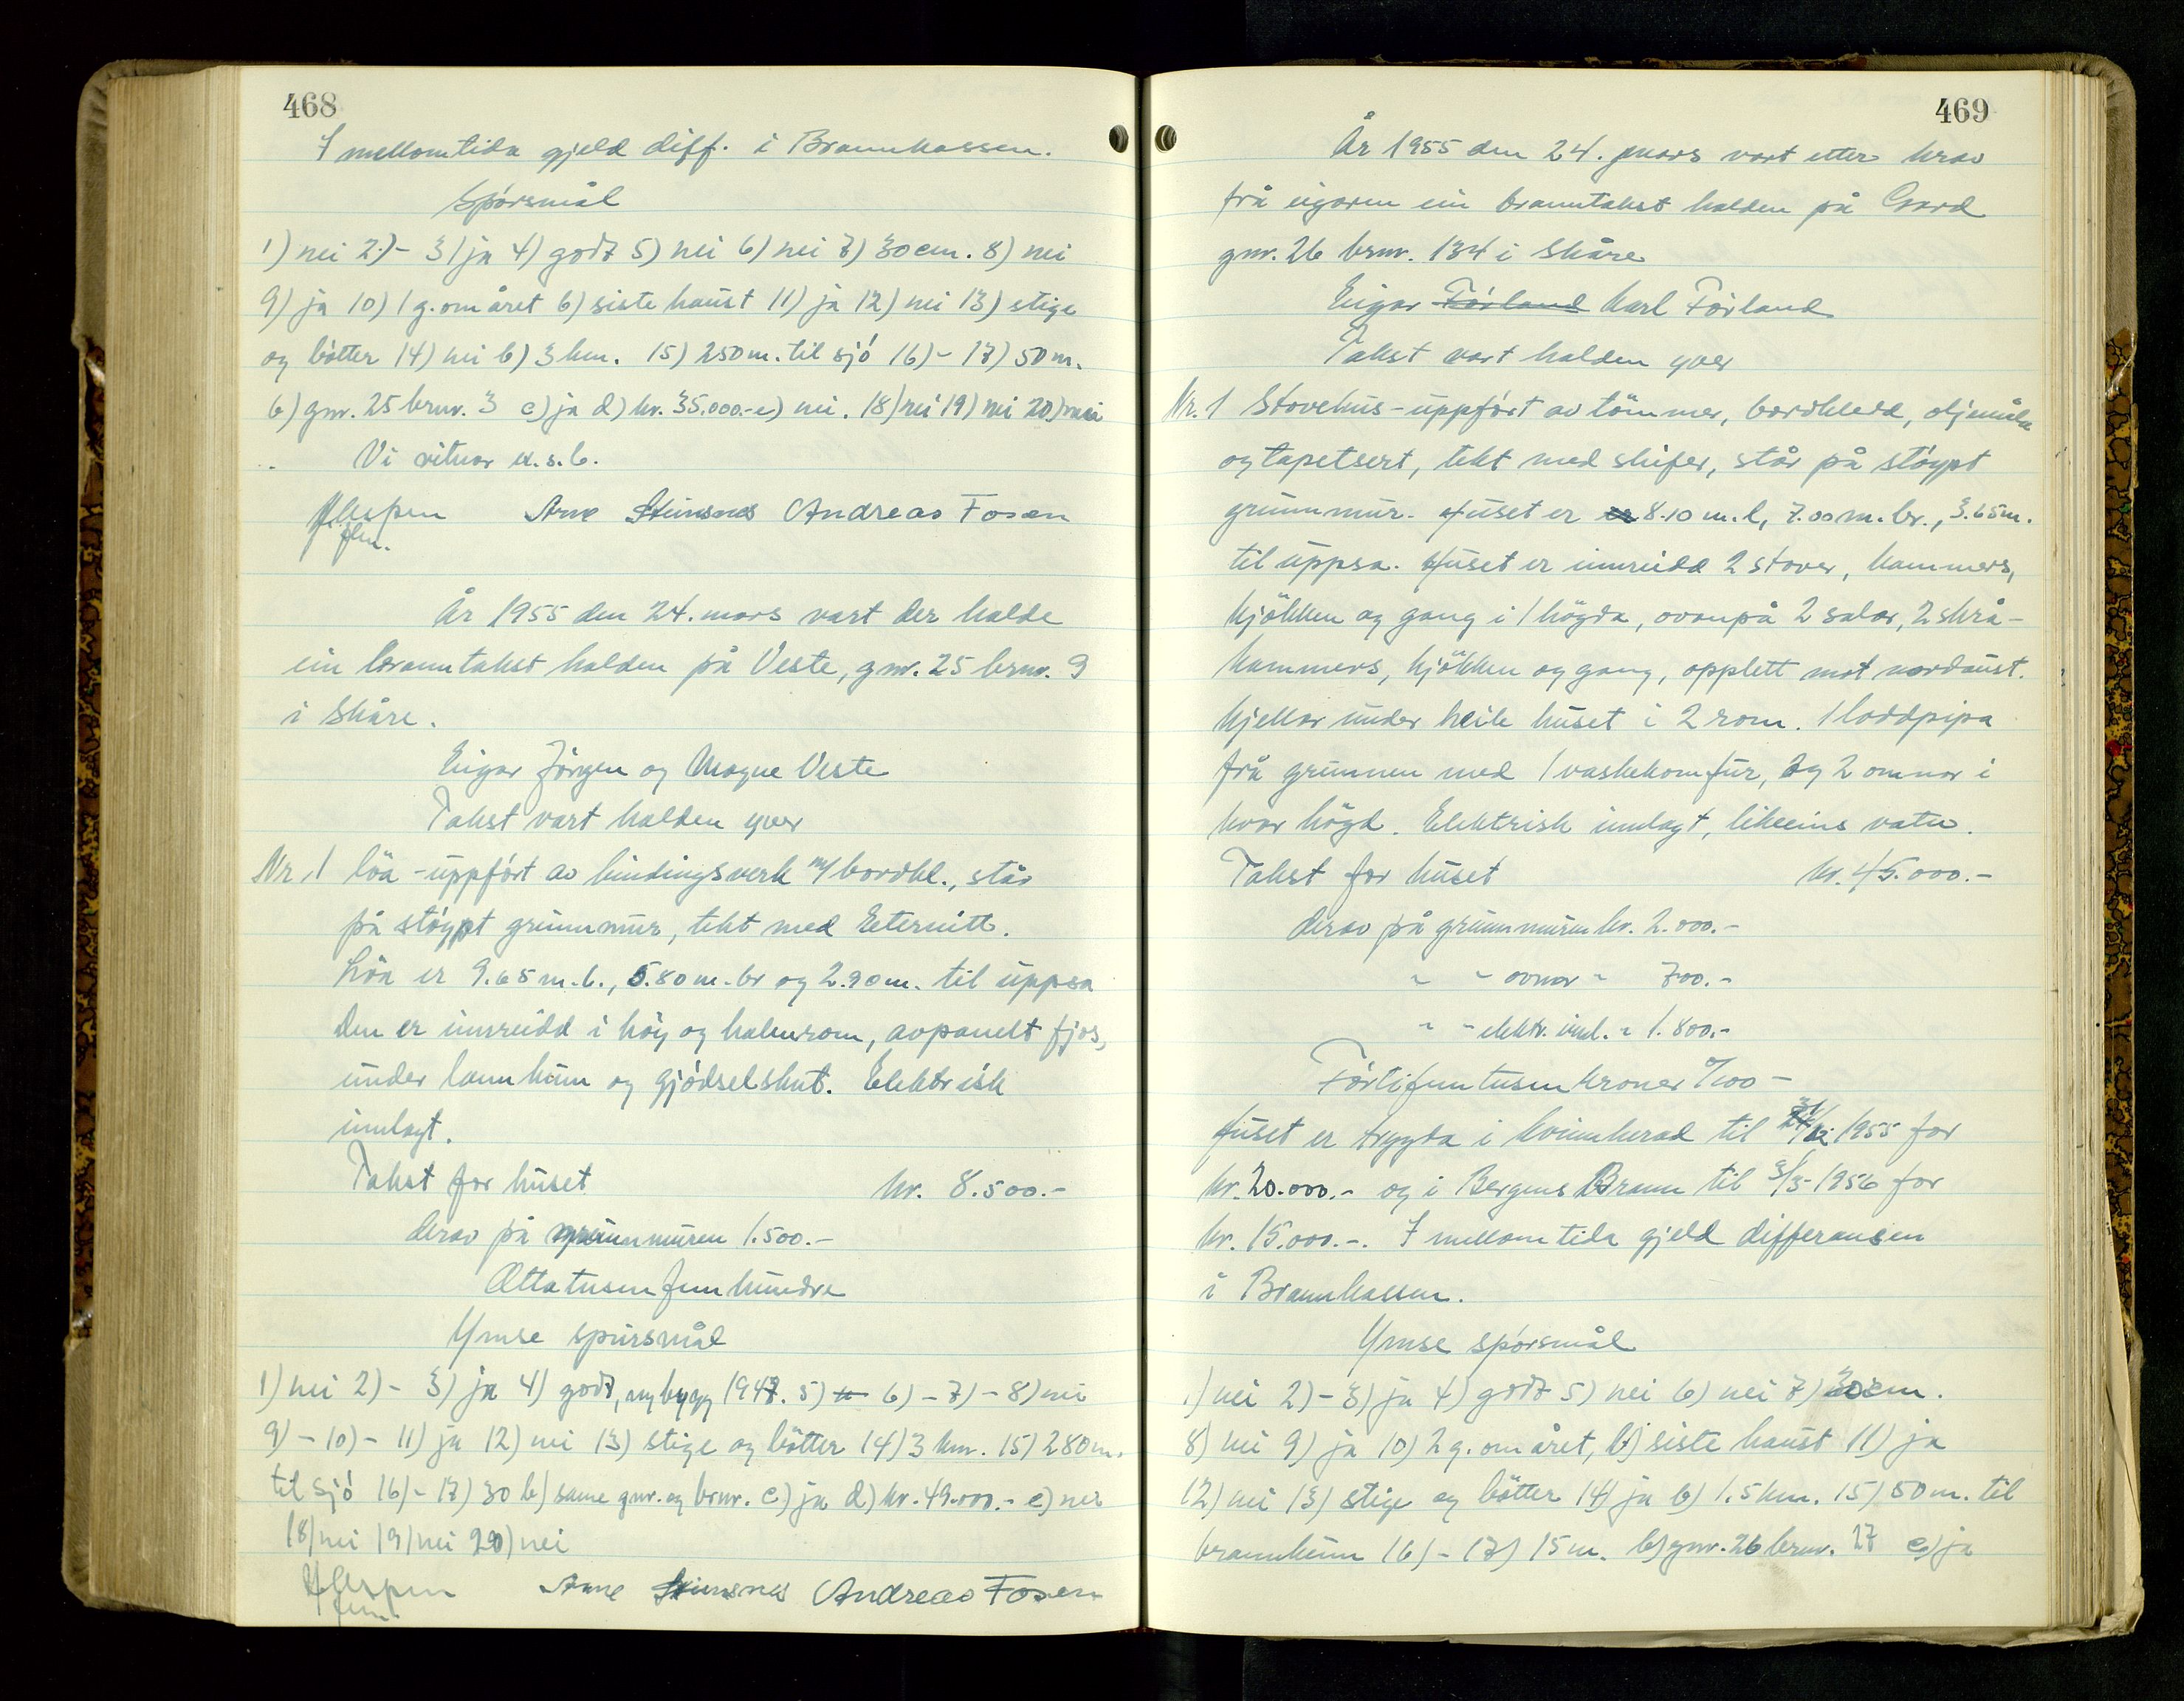 468
I mellomtida gjeld diff. i Brannkassen.
Spórsmål
1) nei 2) - 3) ja 4) godt 5) nei 6) nei 7) 30 cm. 8) nei
9) ja 10) 1 g. om året b) siste haust 11) ja 12) nei 13) stige
og bötter 14) nei b) 3 km. 15) 250 m. til sjó 16) - 17) 50 m.
b) gnr. 25 brnr. 3 c) ja d) kr. 35.000.- e) nei. 18) nei 19) nei 20) nei
Vi vitnar u.s.b.
Arne Stensnes Andreas Fosen
År 1955 den 24. mars vart der halde
ein branntakst halden på Veste, gnr. 25 brnr. 9
i Skåre.
Eigar Jörgen og Magne Veste
Takst vart halden yver
Nr. 1 löa - uppfört av bindingsverk m/ bordkl., står
på stöypt grunnmur, tekt med Eternitt.
Löa er 9.65 m. l., 5.80 m. br og 2.90 m. til uppsa
den er innreidd i höy og halmrom, avpanelt fjos,
under lannkum og gjödselskut. Elektrisk
innlagt.
Takst for huset kr. 8.500.-
derav på grunnmuren 1.500.-
Åttatusenfemhundre
Ymse spursmål
1) nei 2) - 3) ja 4) godt, nybygg 1947. 5) - 6) - 7) - 8) nei
9) - 10) - 11) ja 12) nei 13) stige og bötter 14) 3 km. 15) 280 m.
til sjó 16) - 17) 30 b) same gnr. og brnr. c) ja d) kr. 49.000.- e) nei
18) nei 19) nei 20) nei
Arne Stensnes Andreas Fosen
469
År 1955 den 24. mars vart etter krav
frå eigaren ein branntakst halden på Gard
gnr. 26 brnr. 134 i Skåre
Eigar Förland Karl Förland
Takst vart halden yver
Nr. 1 Stovehus - uppfört av tömmer, bordkledd, oljemåla
og tapetsert, tekt med skifer, står på stöypt
grunnmur. Huset er 8.10 m. l, 7.00 m. br., 3.65 m.
til uppsa. Huset er innreidd 2 stover, kammers,
kjökken og gang i 1 högda, ovanpå 2 salar, 2 skrå-
kammers, kjökken og gang, opplett mot nordaust.
Kjellar under heile huset i 2 rom. 1 loddpipa
frå grunnen med 1 vaskekomfur, og 2 omnar i
kvar högd. Elektrisk innlagt, likeeins vatn.
Takst for huset kr. 45.000.-
derav på grunnmuren kr. 2.000.-
" " ovnar " 700.-
" " elektr. innl. " 1.800.-
Förtifemtusen kroner 0/100 -
Huset er trygda i Kvinnherad til 31/12 1955 for
kr. 20.000.- og i Bergens Brann til 3/5 1956 for
kr. 15.000.-. I mellomtida gjeld differansen
i Brannkassen.
Ymse spórsmål
1) nei 2) - 3) ja 4) godt 5) nei 6) nei 7) 30 cm.
8) nei 9) ja 10) 2 g. om året, b) siste haust 11) ja
12) nei 13) stige og bötter 14) ja b) 1.5 km. 15) 50 m. til
brannkum 16) - 17) 15 m. b) gnr. 26 brnr. 27 c) ja